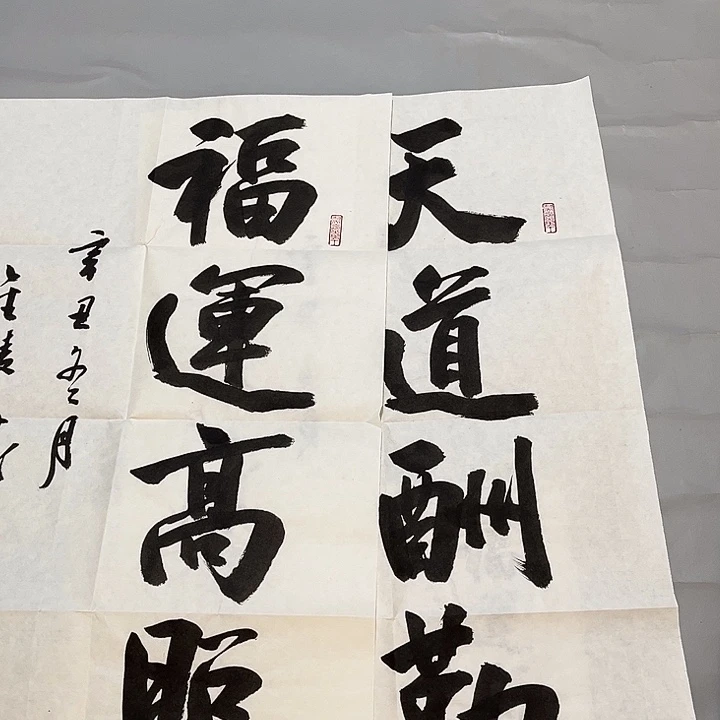 天道酬勤
福運高照
辛丑冬月